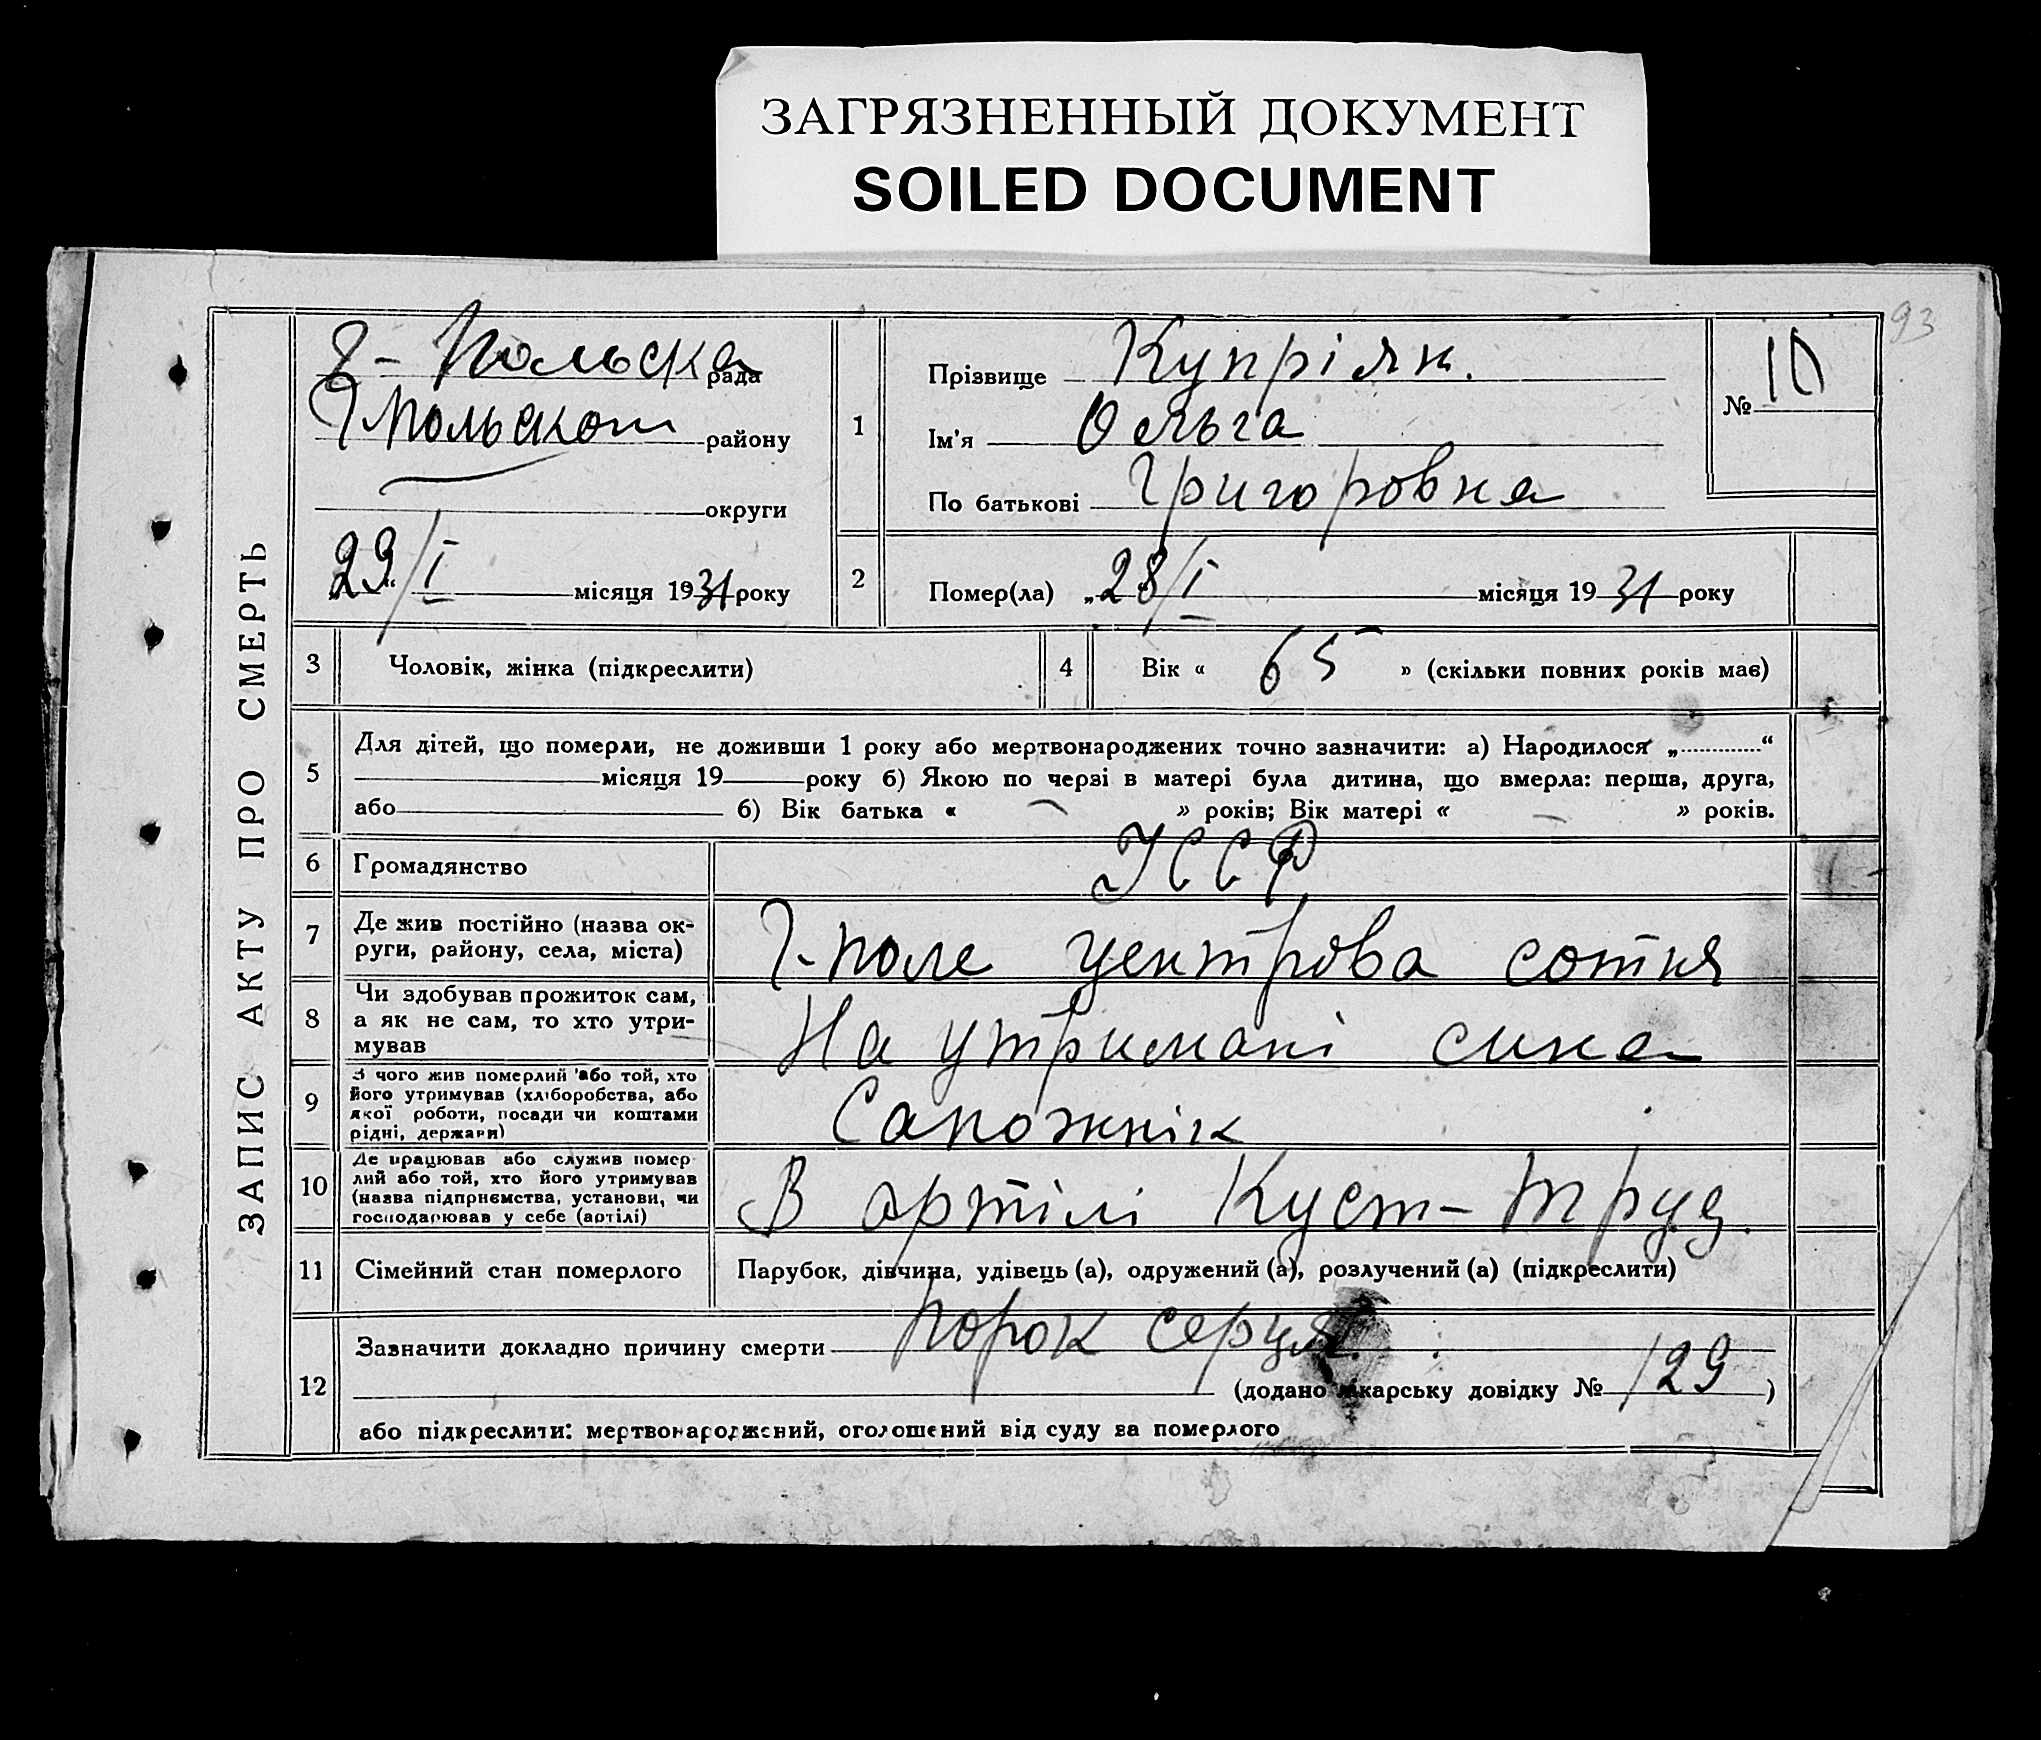 ЗАГРЯЗНЕННЫЙ ДОКУМЕНТ
SOILED DOCUMENT
93
ЗАПИС АКТУ ПРО СМЕРТЬ
Г-Польска рада
Гпольского району
округи
29/I місяця 1931 року
1
Прізвище Купріян.
Ім'я Ольга
По батькові Григоровна
№ 10
2
Помер(ла) „28/I місяця 1931 року
3 Чоловік, жінка (підкреслити)
4 Вік « 65 » (скільки повних років має)
5 Для дітей, що померли, не доживши 1 року або мертвонароджених точно зазначити: а) Народилося „............“
місяця 19 року б) Якою по черзі в матері була дитина, що вмерла: перша, друга,
або б) Вік батька « — » років; Вік матері « — » років.
6 Громадянство УССР
7 Де жив постійно (назва ок-
руги, району, села, міста)
Г-поле центрова сотня
8 Чи здобував прожиток сам,
а як не сам, то хто утри-
мував
На утримані сина
9 З чого жив померлий або той, хто
його утримував (хліборобства, або
якої роботи, посади чи коштами
рідні, держави)
Сапожнік
10 Де працював або служив помер
лий або той, хто його утримував
(назва підприємства, установи, чи
господарював у себе (артілі)
В артілі Куст-труд.
11 Сімейний стан померлого Парубок, дівчина, удівець (а), одружений (а), розлучений (а) (підкреслити)
12 Зазначити докладно причину смерти Порок серця.
(додано лікарську довідку № 129 )
або підкреслити: мертвонароджений, оголошений від суду за померлого